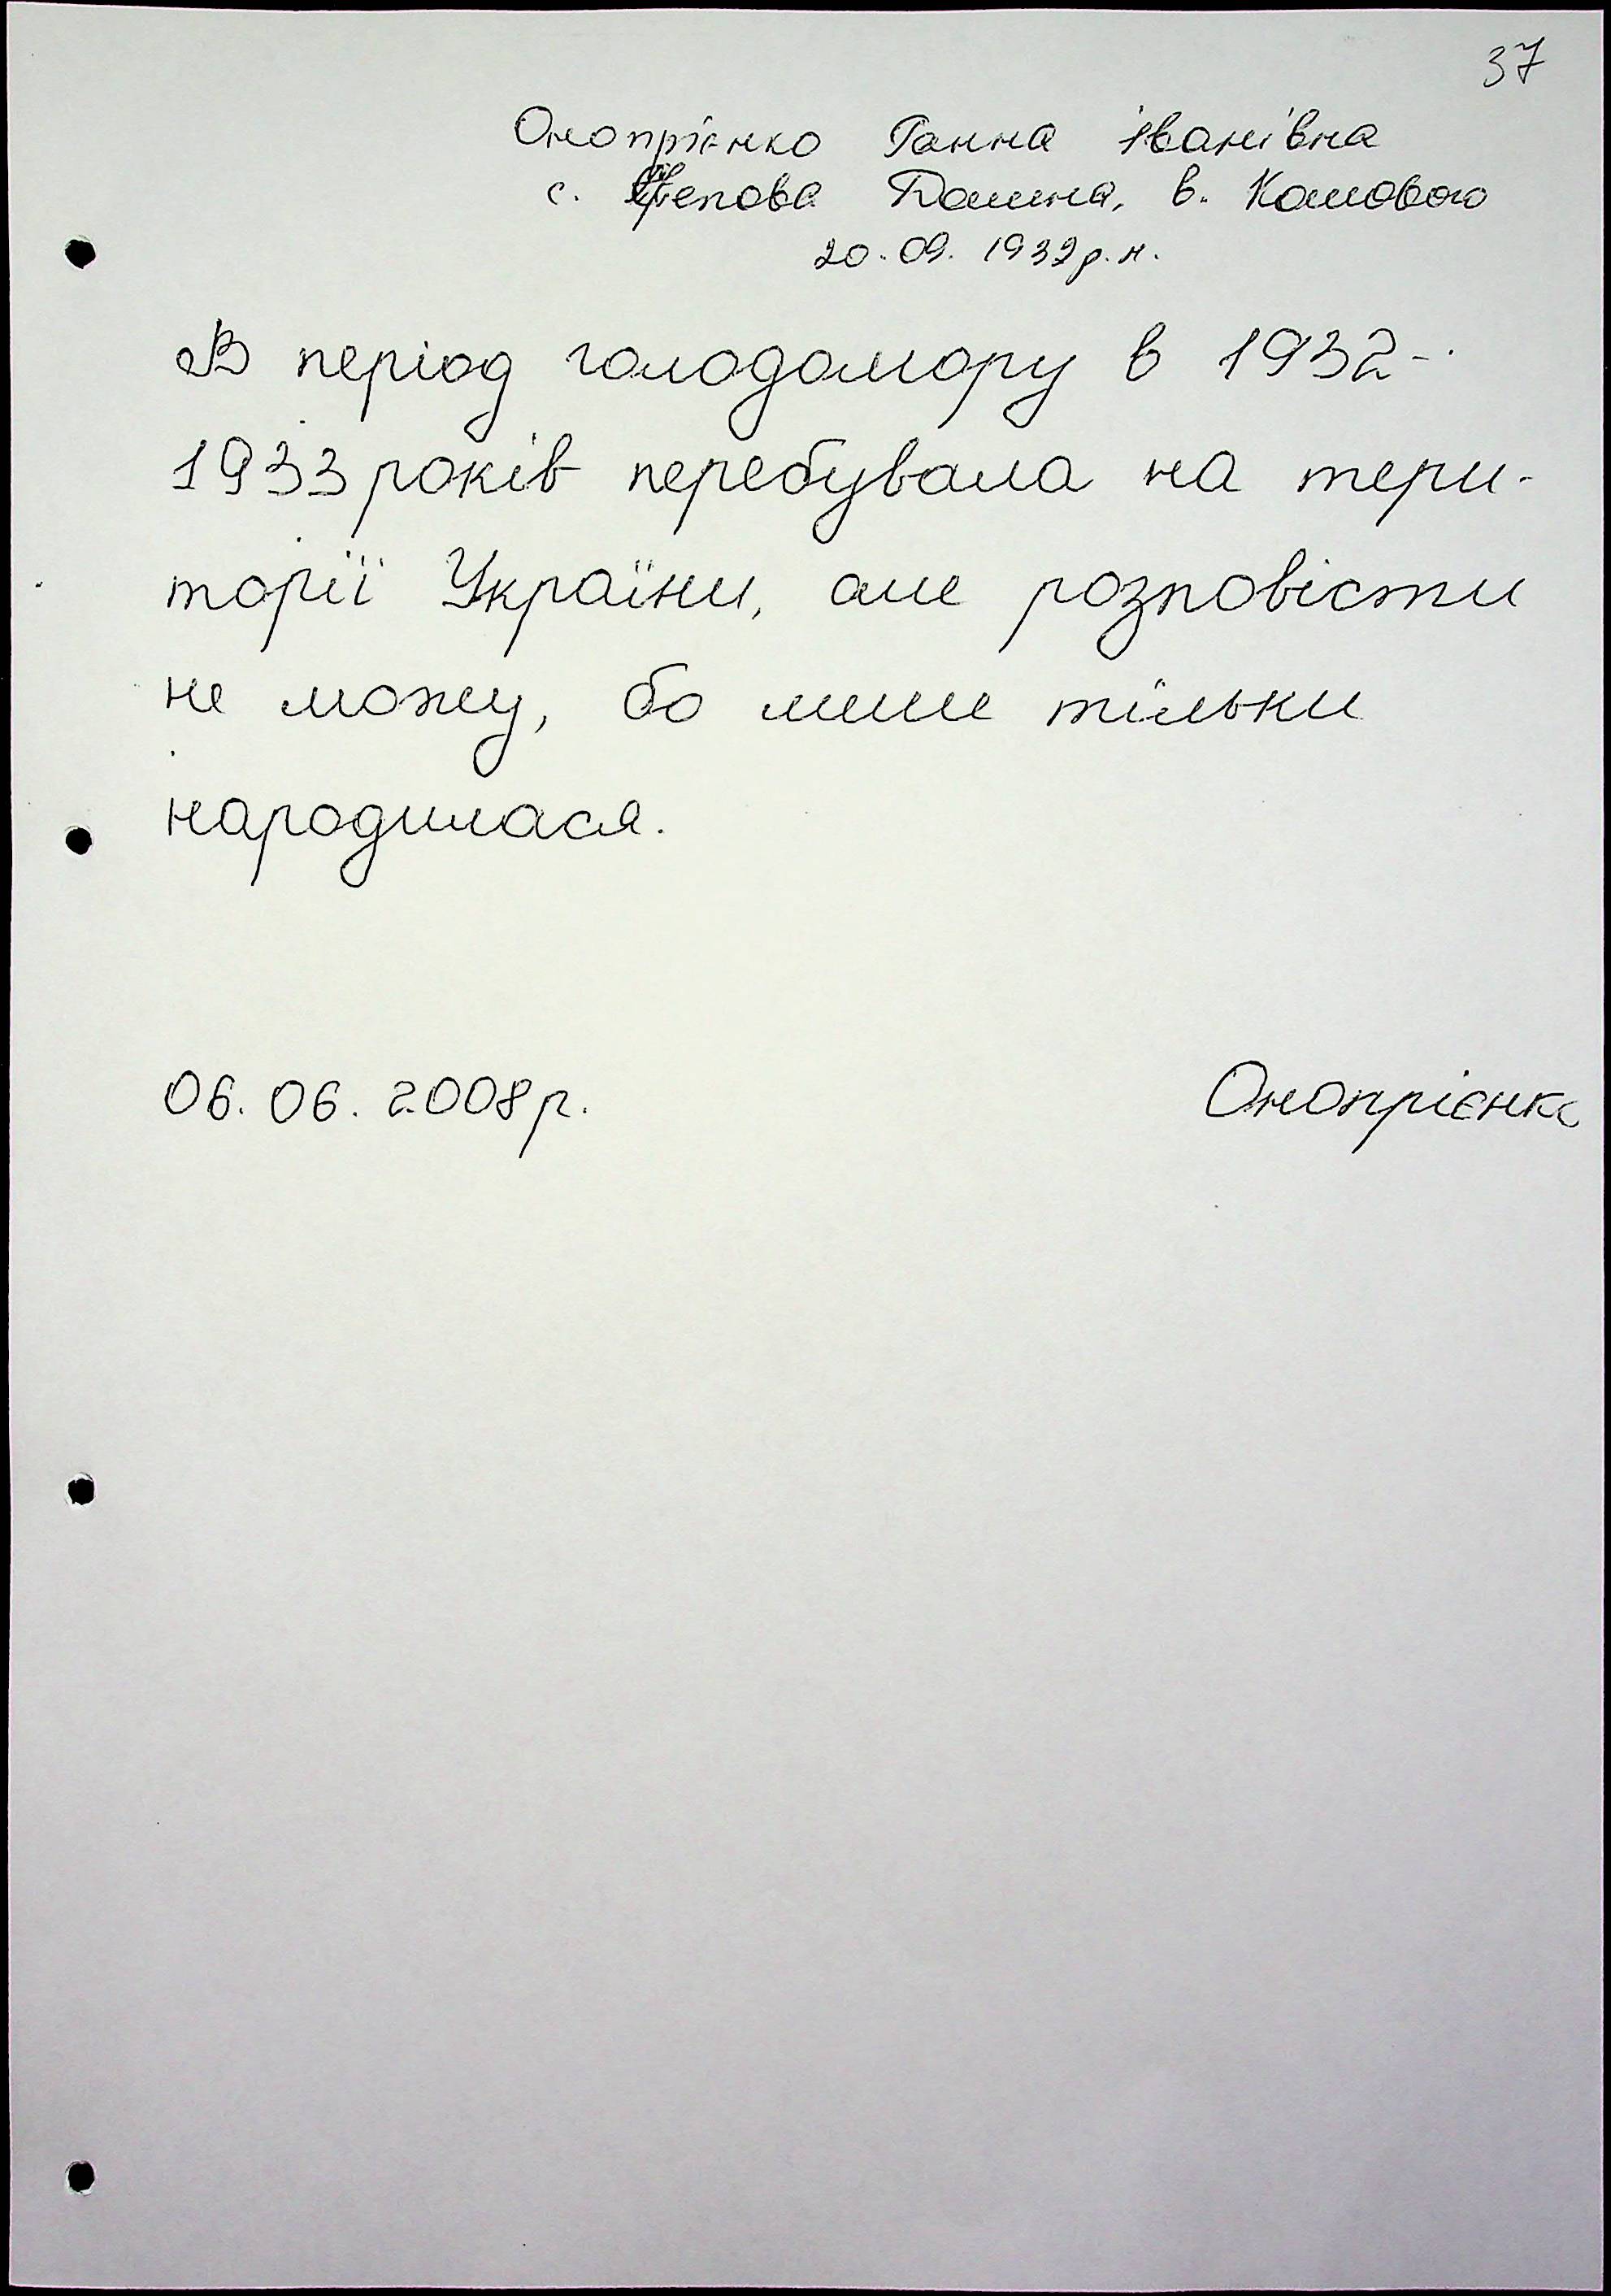 37
Онопрієнко Ганна Іванівна
с. Степова Долина, в. Калинового
20.09.1932р.н.
В період голодомору в 1932-
1933 років перебувала на тери-
торії України, але розповісти
не можу, бо лише тільки
народилася.
06.06.2008р.
Онопрієнко